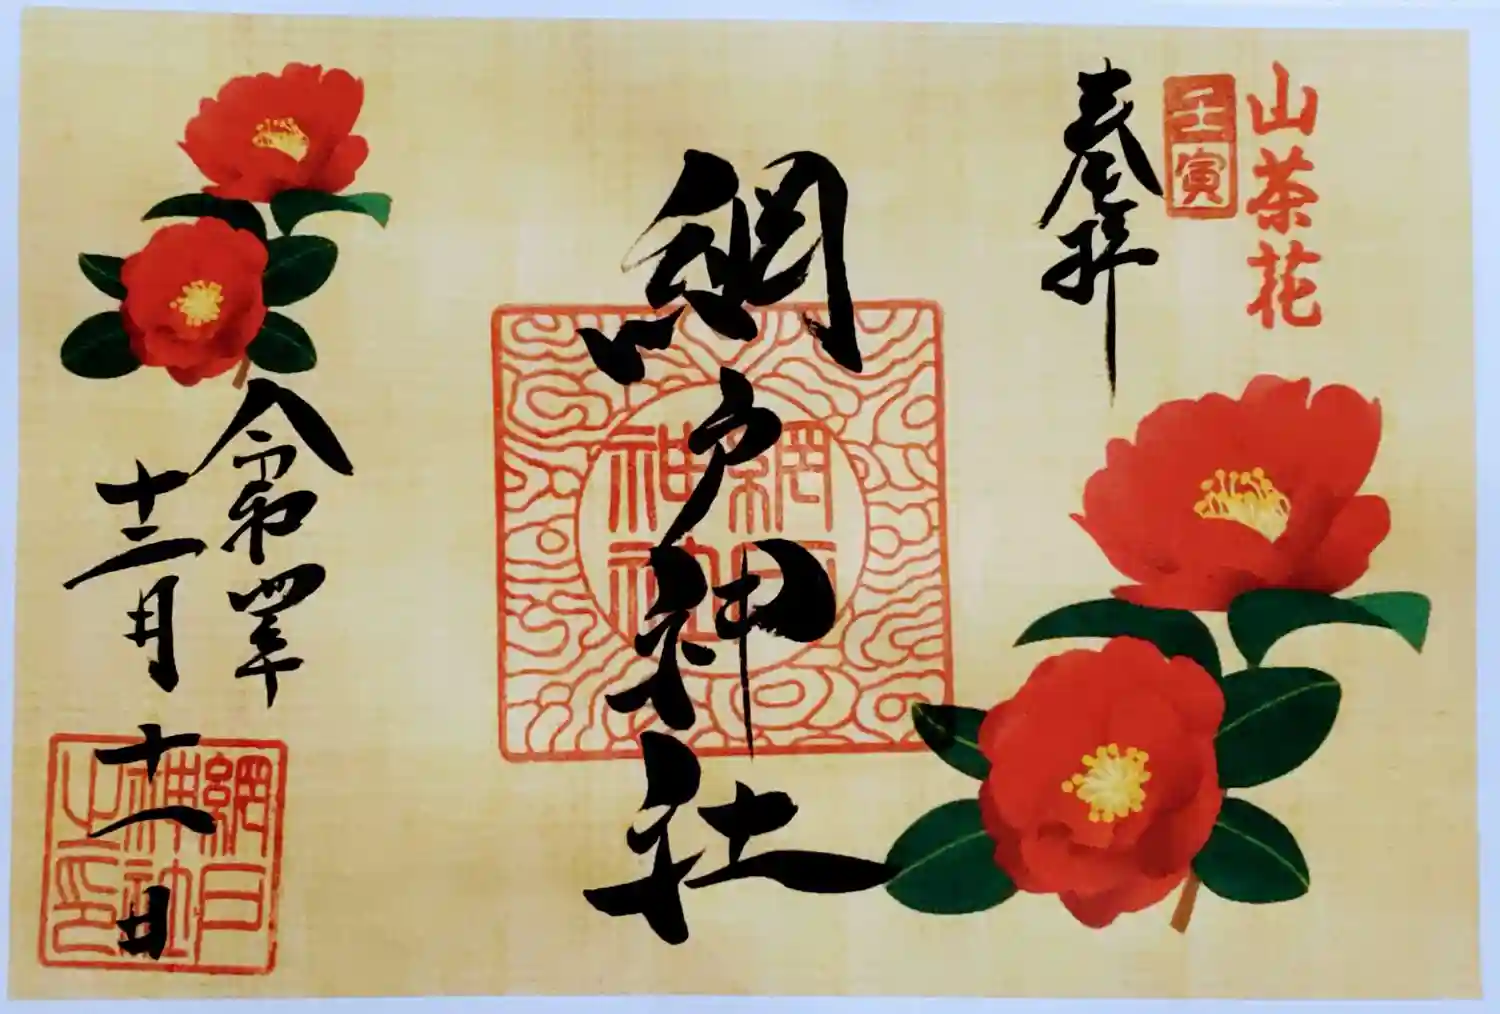 山茶花
壬寅
奉拝
網戸神社
網戸神社
令和四年
十二月十一日
網戸神社之印